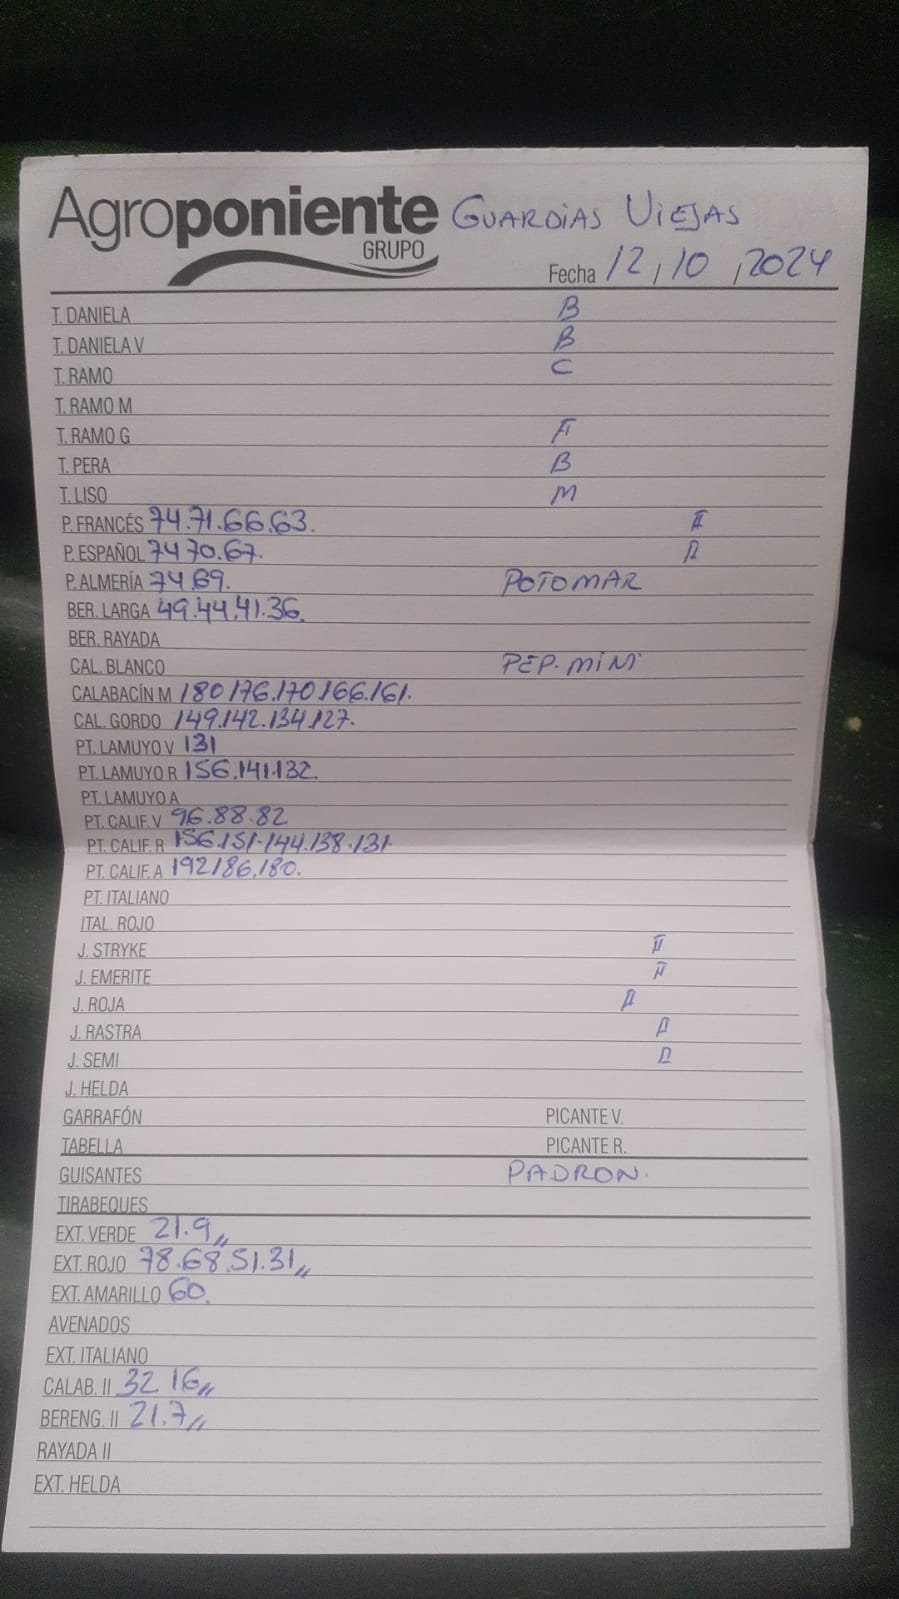 Agroponiente GUARDIAS VIEJAS
GRUPO
Fecha 12/10/2024
T. DANIELA B
T. DANIELA V B
T. RAMO C
T. RAMO M
T. RAMO G F
T. PERA B
T. LISO M
P. FRANCÉS 74.71.66.63. II
P. ESPAÑOL 74 70.67.
P. ALMERÍA 74.69. POTOMAR
BER. LARGA 49.44.41.36.
BER. RAYADA
CAL. BLANCO PEP. MINI
CALABACÍN M 180 176.170 166.161.
CAL. GORDO 149.142.134.127.
PT. LAMUYO V 131
PT. LAMUYO R 156.141.132.
PT. LAMUYO A
PT. CALIF. V 96.88.82
PT. CALIF. R 156.151.144.138.131.
PT. CALIF. A 192 186.180.
PT. ITALIANO
ITAL. ROJO
J. STRYKE II
J. EMERITE
J. ROJA
J. RASTRA
J. SEMI
J. HELDA
GARRAFÓN PICANTE V.
TABELLA PICANTE R.
GUISANTES PADRON.
TIRABEQUES
EXT. VERDE 21.9,,
EXT. ROJO 78.68.51.31,,
EXT. AMARILLO 60.
AVENADOS
EXT. ITALIANO
CALAB. II 32.16,,
BERENG. II 21.7,,
RAYADA II
EXT. HELDA